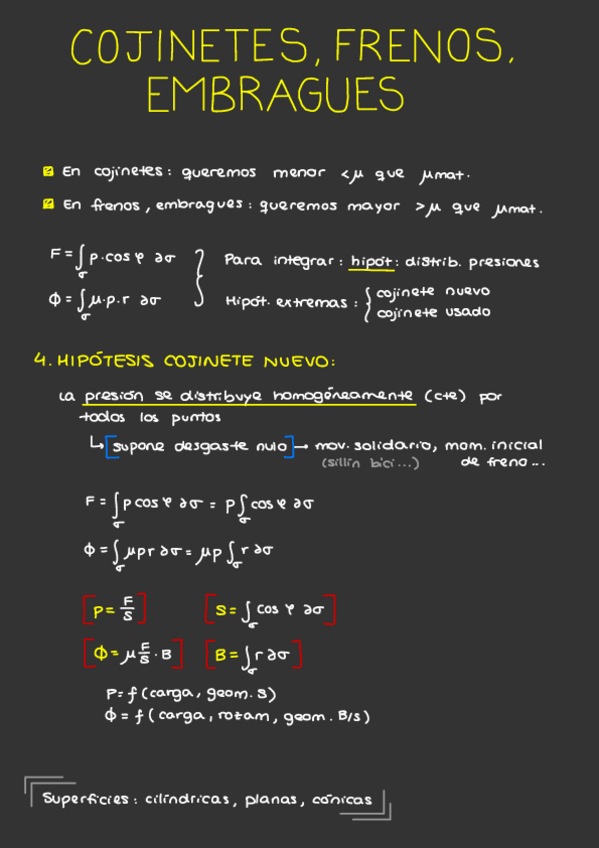 COJINETES, FRENOS,
EMBRAGUES
En cojinetes: queremos menor <μ que μmat.
En frenos, embragues: queremos mayor >μ que μmat.
F = ∫σ p·cos φ ∂σ
ϕ = ∫σ μ·p·r ∂σ
Para integrar: hipót: distrib. presiones
Hipót. extremas: { cojinete nuevo
cojinete usado
4. HIPÓTESIS COJINETE NUEVO:
La presión se distribuye homogéneamente (cte) por
todos los puntos
↳ [supone desgaste nulo] → mov. solidario, mom. inicial
(sillín bici...) de freno...
F = ∫σ p cos φ ∂σ = p ∫σ cos φ ∂σ
ϕ = ∫σ μpr ∂σ = μp ∫σ r ∂σ
[P = F/S] [S = ∫σ cos φ ∂σ]
[ϕ = μ F/S · B] [B = ∫σ r ∂σ]
P = f (carga, geom. S)
ϕ = f (carga, rozam, geom. B/s)
Superficies: cilíndricas, planas, cónicas